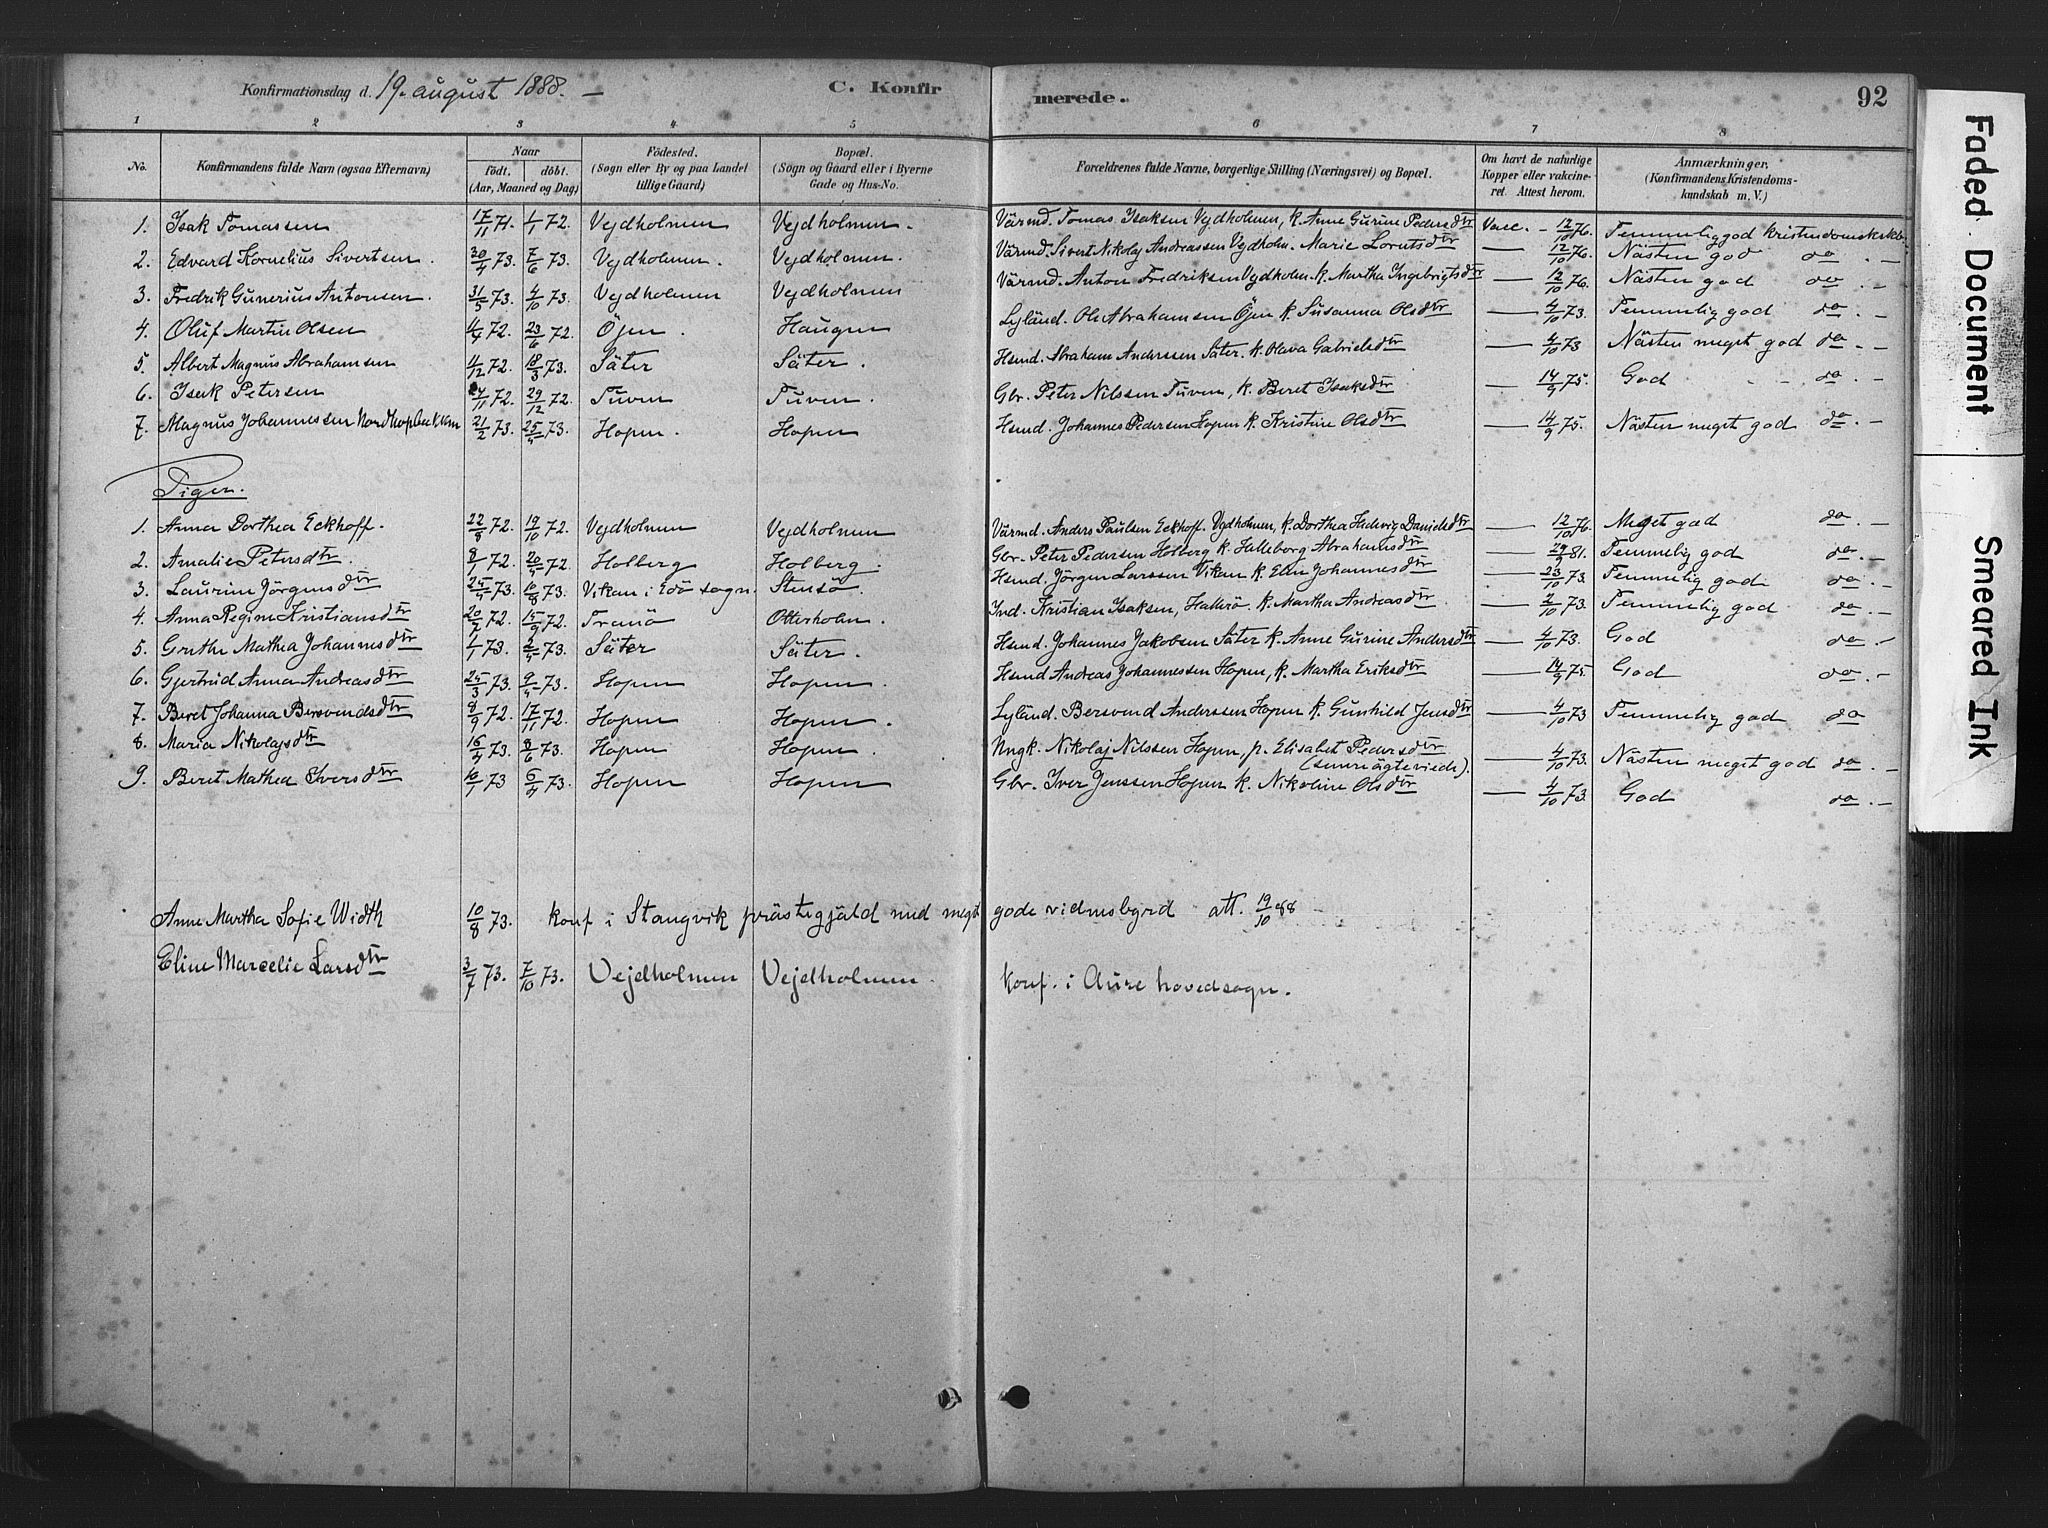 Konfirmationsdag d. 19. august 1888. —
C. Konfirmerede.
92
1 2 3 4 5 6 7 8
No. Konfirmandens fulde Navn (ogsaa Efternavn) Naar Födt. döbt. (Aar, Maaned og Dag) Födested. (Sogn eller By og paa Landet tillige Gaard) Bopæl. (Sogn og Gaard eller i Byerne Gade og Hus-No. Forældrenes fulde Navne, borgerlige Stilling (Næringsvei) og Bopæl. Om havt de naturlige Kopper eller vakcineret. Attest herom. Anmærkninger. (Konfirmandens Kristendomskundskab m. V.)
1. Isak Tomassen 17/11 71. 1/1 72. Vejdholmen Vejdholmen. Värmd. Tomas Isaksen Vejdholmen, k. Anne Gurine Pedersdtr Vacc. - 12/10 76. Temmelig god kristendomskskb.
2. Edvard Kornelius Sivertsen. 30/4 73. 7/6 73. Vejdholmen. Vejdholmen. Värmd. Sivert Nikolaj Andreassen Vejdholm. Marie Lorntsdtr — 12/10 76. Nästen god do. —
3. Fredrik Gunerius Antonsen. 31/5 73. 4/10 73. Vejdholmen Vejdholmen Värmd. Anton Fredriksen Vejdholm. k. Martha Ingebrigtsdtr — 12/10 76. Nästen god do. —
4. Oluf Martin Olsen 4/4 72. 23/6 72. Öjen. Haugen Lyländ. Ole Abrahamsen Öjen k. Susanna Olsdtr — 4/10 73. Temmelig god do. —
5. Albert Magnus Abrahamsen 11/12 72. 18/3 73. Säter Säter. Hsmd. Abraham Anderssen Säter. k. Olava Gabrielsdtr — 4/10 73 Nästen meget god do. —
6. Isak Petersen 24/11 72. 29/12 72. Tuven Tuven. Gbr. Peter Nilssen Tuven, k. Beret Isaksdtr — 14/9 75. God do. —
7. Magnus Johannessen 21/2 73. 25/4 73. Hopen. Hopen Hsmd. Johannes Pedersen Hopen k. Kristine Olsdtr — 14/9 75. Nästen meget god do. —
Piger.
1. Anna Dorthea Eckhoff. 22/8 72. 19/10 72. Vejdholmen Vejdholmen Värmd. Anders Paulsen Eckhoff. Vejdholmen, k. Dorthea Hedvig Danielsdtr — 12/10 76. Meget god do. —
2. Amalie Petersdtr. 8/1 72. 20/4 72. Holberg Holberg. Gbr. Peter Pedersen Holberg k. Halleborg Abrahamsdtr — 29/9 81. Temmelig god do. —
3. Laurine Jörgensdtr 25/4 73. 10/8 73. Vikan i Edö sogn. Stensö. Hsmd. Jörgen Larssen Vikan k. Elen Johannesdtr — 23/10 73. Temmelig god do. —
4. Anna Regine Kristiansdtr 20/7 72. 15/9 72. Tranö Otterholm. Ind. Kristian Isaksen, Hallerö k. Martha Andreasdtr — 2/10 73. Temmelig god do. —
5. Gruthe Mathea Johannesdtr 1/1 73. 2/4 73. Säter Säter. Hsmd. Johannes Jakobsen Säter k. Anne Gurine Andersdtr — 4/10 73. God do. —
6. Gjertrud Anna Andreasdtr 25/3 73. 9/4 73. Hopen Hopen. Hsmd Andreas Johannessen Hopen, k. Martha Eriksdtr — 14/9 75. God do. —
7. Beret Johanna Bersvendsdtr 8/9 72. 17/11 72. Hopen Hopen. Lyländ. Bersvend Anderssen Hopen k. Gunhild Jensdtr — 4/10 73 Temmelig god do
8. Maria Nikolajsdtr 16/4 73. 8/6 73. Hopen Hopen. Ungk. Nikolaj Nilssen Hopen, p. Elisabet Pedersdtr (senere ägteviede). — 4/10 73. Nästen meget god do. —
9. Beret Mathea Iversdtr 10/1 73 6/4 73. Hopen Hopen Gbr. Iver Jenssen Hopen k. Nikoline Olsdtr — 4/10 73. God do. —
Anne Martha Sofie Width 10/8 73. konf i Stangvik prästegjäld med meget gode vidnesbyrd att. 19/10 88
Eline Marcelie Larsdtr 3/7 73. 7/10 73. Vejdholmen Vejdholmen. konf. i Aure hovedsogn.
Faded Document
Smeared Ink